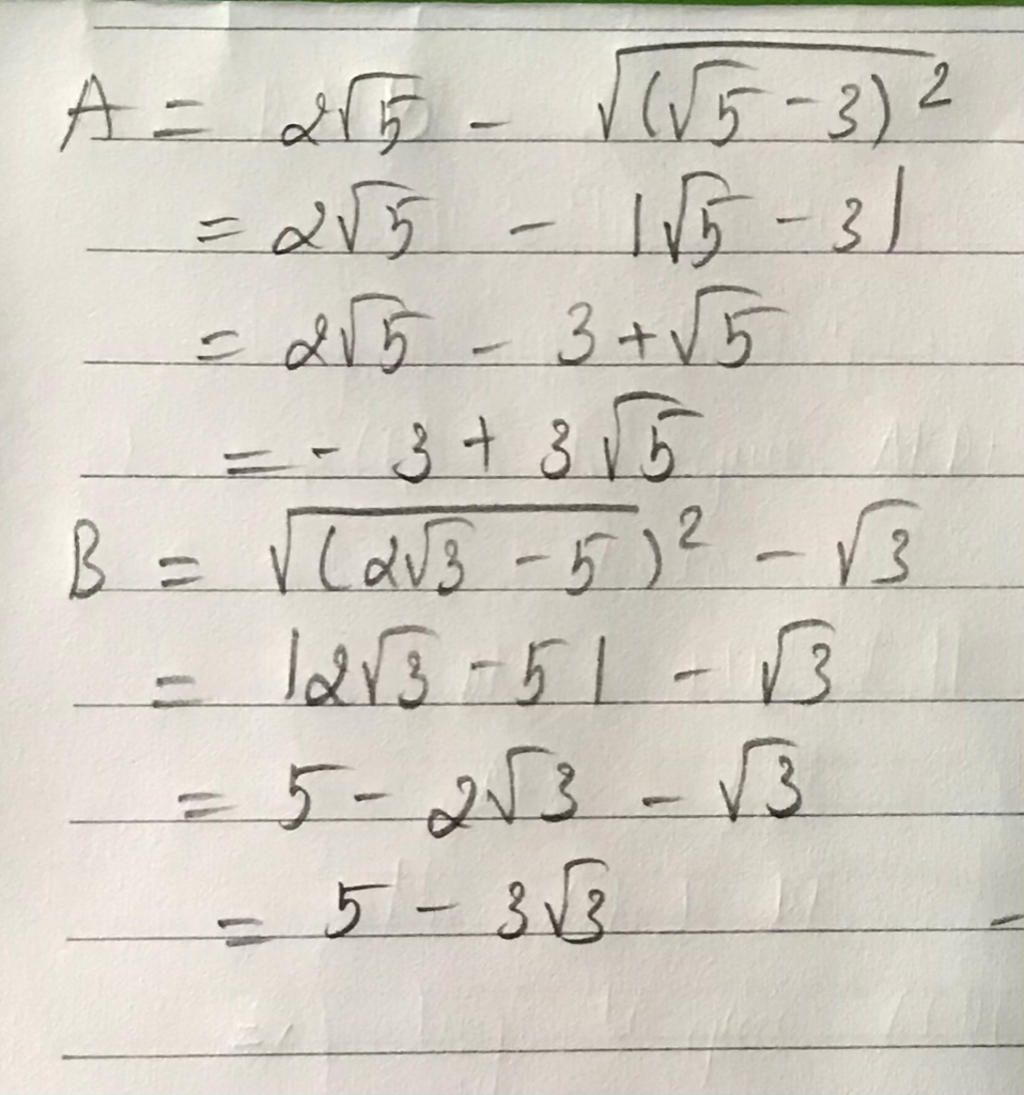 A = 2√5 - √(√5 - 3)²
= 2√5 - |√5 - 3|
= 2√5 - 3 + √5
= - 3 + 3√5
B = √(2√3 - 5)² - √3
= |2√3 - 5| - √3
= 5 - 2√3 - √3
= 5 - 3√3 -